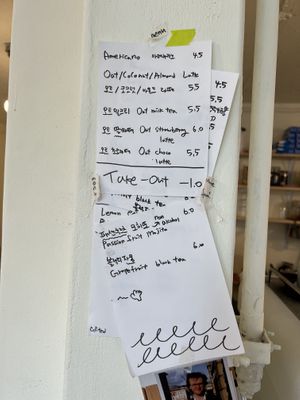 menu
Americano 아메리카노 4.5
Oat/Coconut/Almond Latte
오트/코코넛/아몬드 라떼 5.5
오트밀크티 Oat milk tea 5.5
오트 딸기라떼 Oat Strawberry 6.0
latte
오트 초코라떼 Oat choco 5.5
latte
Take-out -1.0
black tea
Lemon 6.0
non
alcohol
Passion fruit Mojito
6.0
Grapefruit black tea
5.5
5.5
6.0